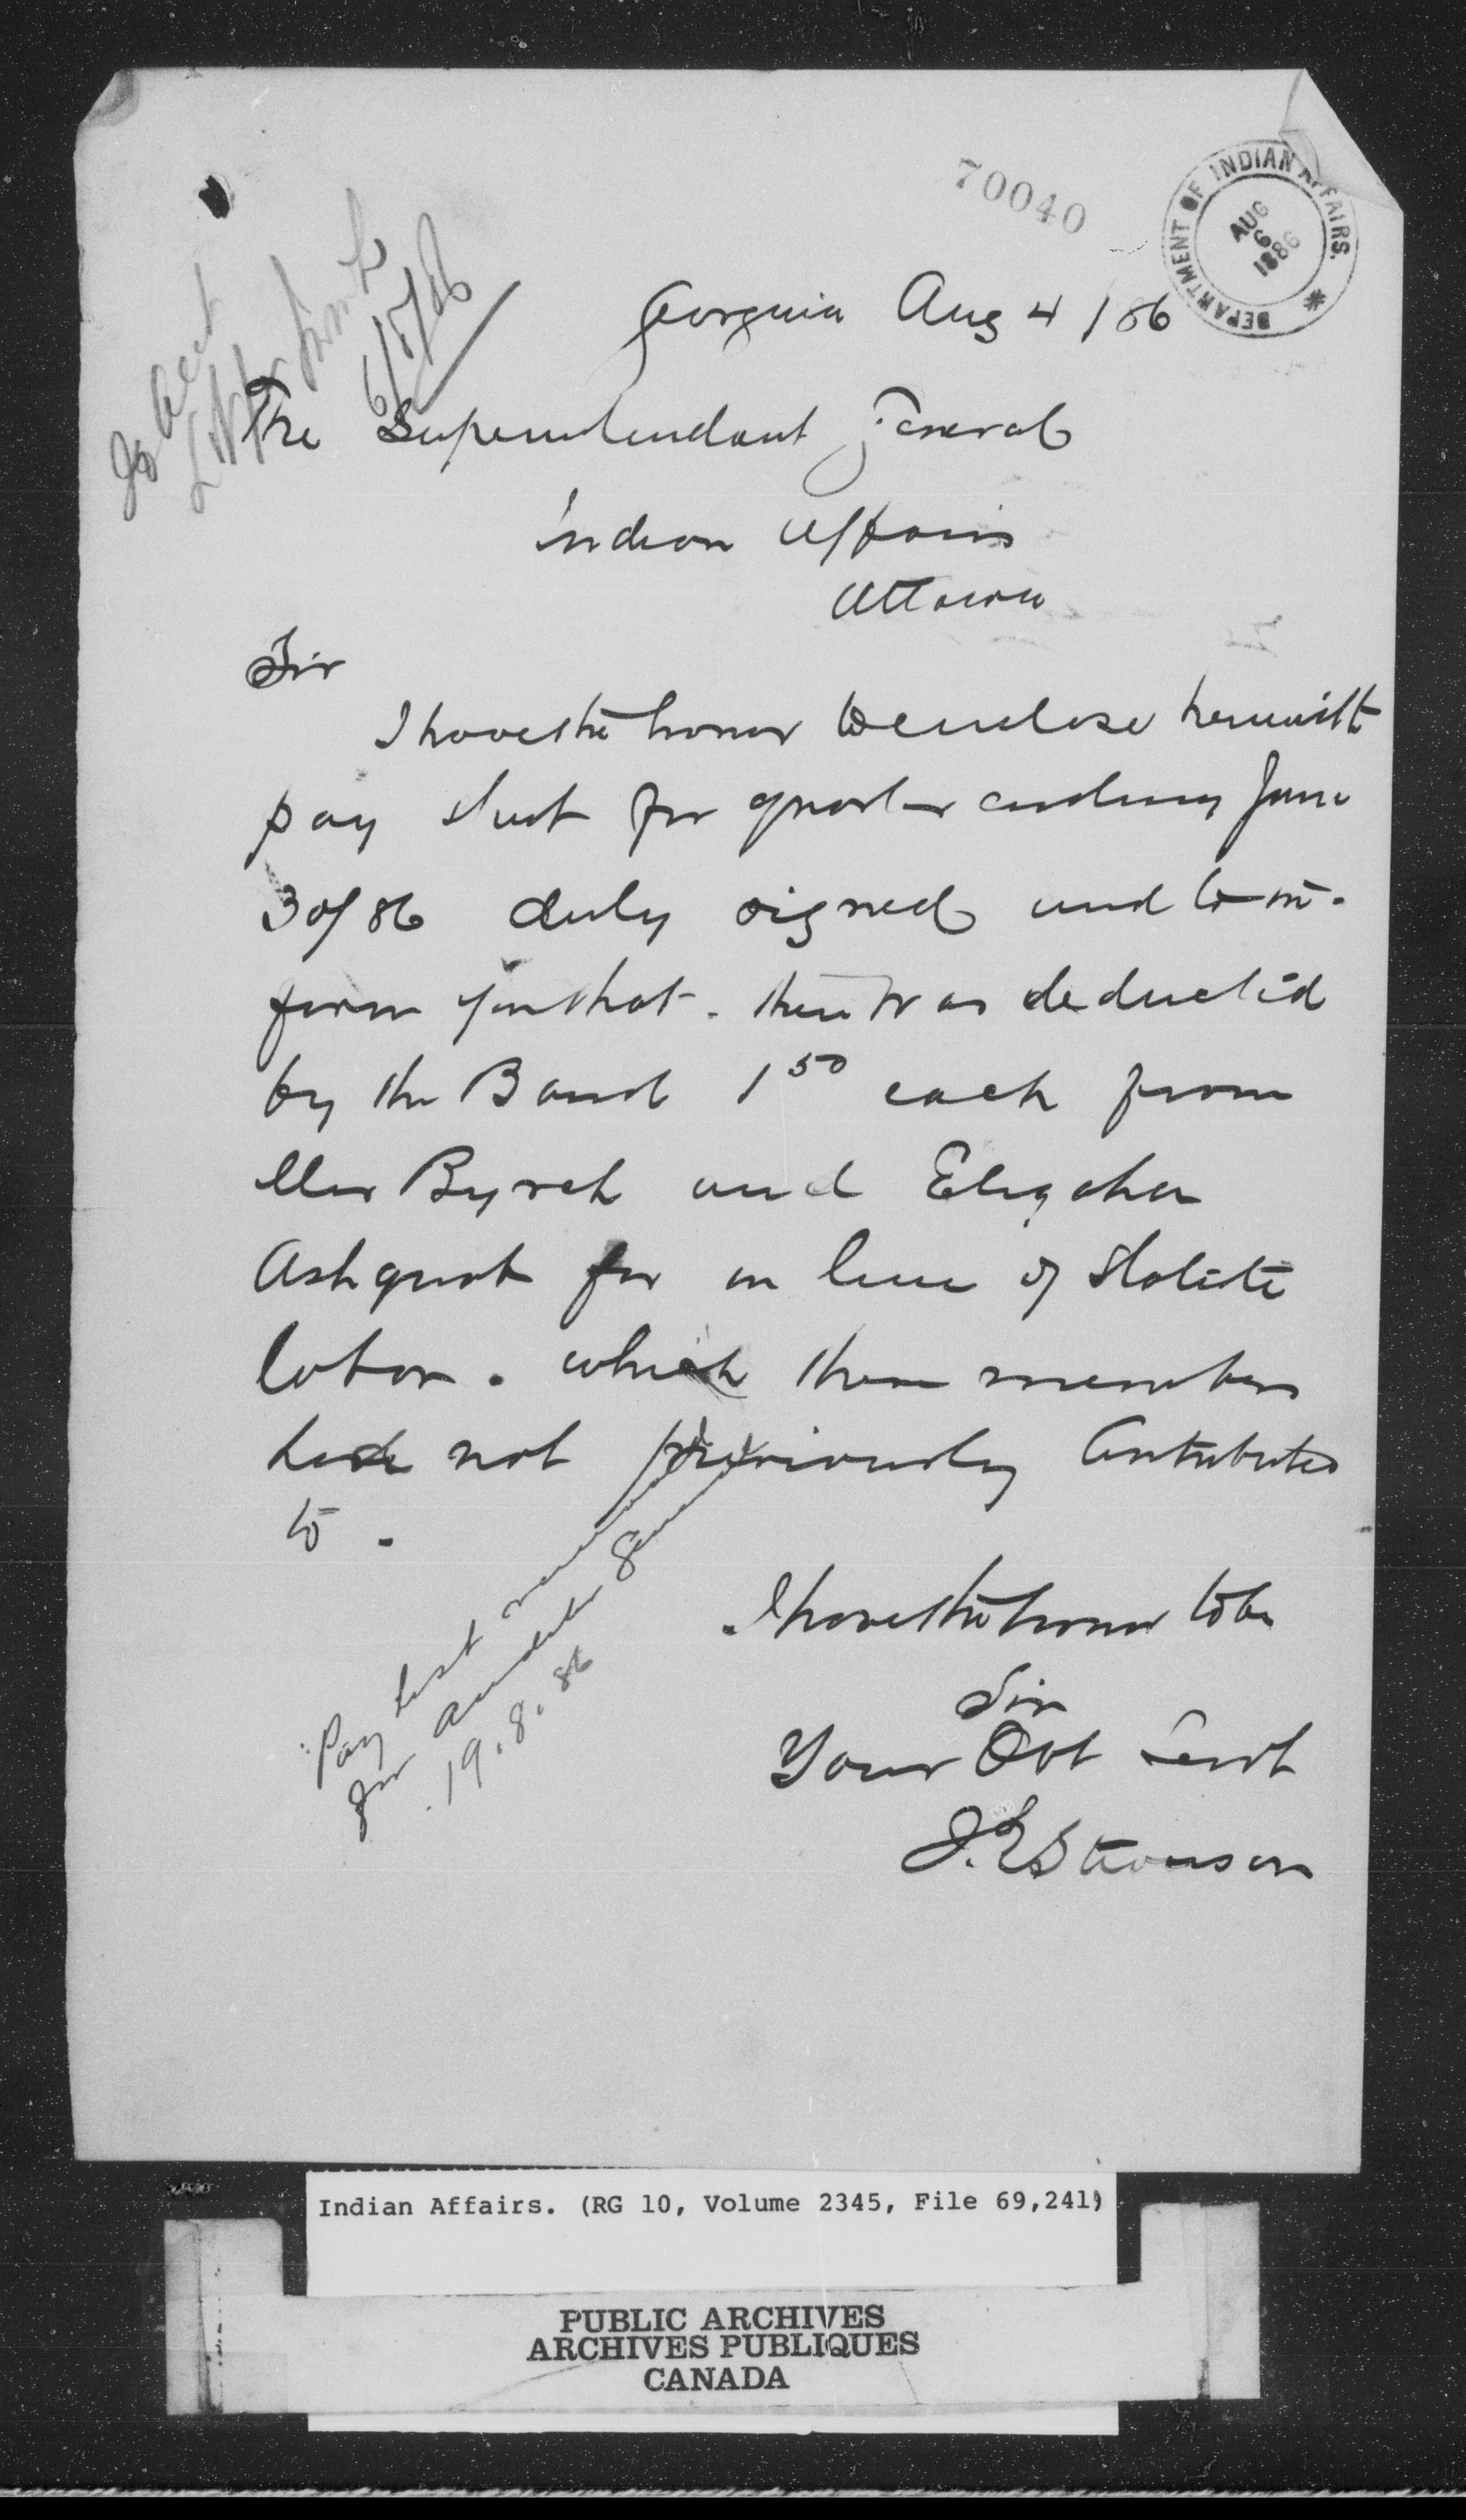 70040
DEPARTMENT OF INDIAN AFFAIRS.
AUG
6
1886
Georgina Aug 4 / 86
6/8/86
The Superintendant General
Indian Affairs
Ottawa
Sir
I have the honor to enclose herewith
pay sheet for quarter ending June
30/86 duly signed and to in-
form you that. there was deducted
by the Band 1 50 each from
Byrch and
Ashquab for in lieu of Statite
labor. which these members
have not previously Contributed
to.
I have the honor to be
Sir
Your Obt Servt
J. R Stevenson
Pay list
for
19.8.86
Indian Affairs. (RG 10, Volume 2345, File 69,241)
PUBLIC ARCHIVES
ARCHIVES PUBLIQUES
CANADA